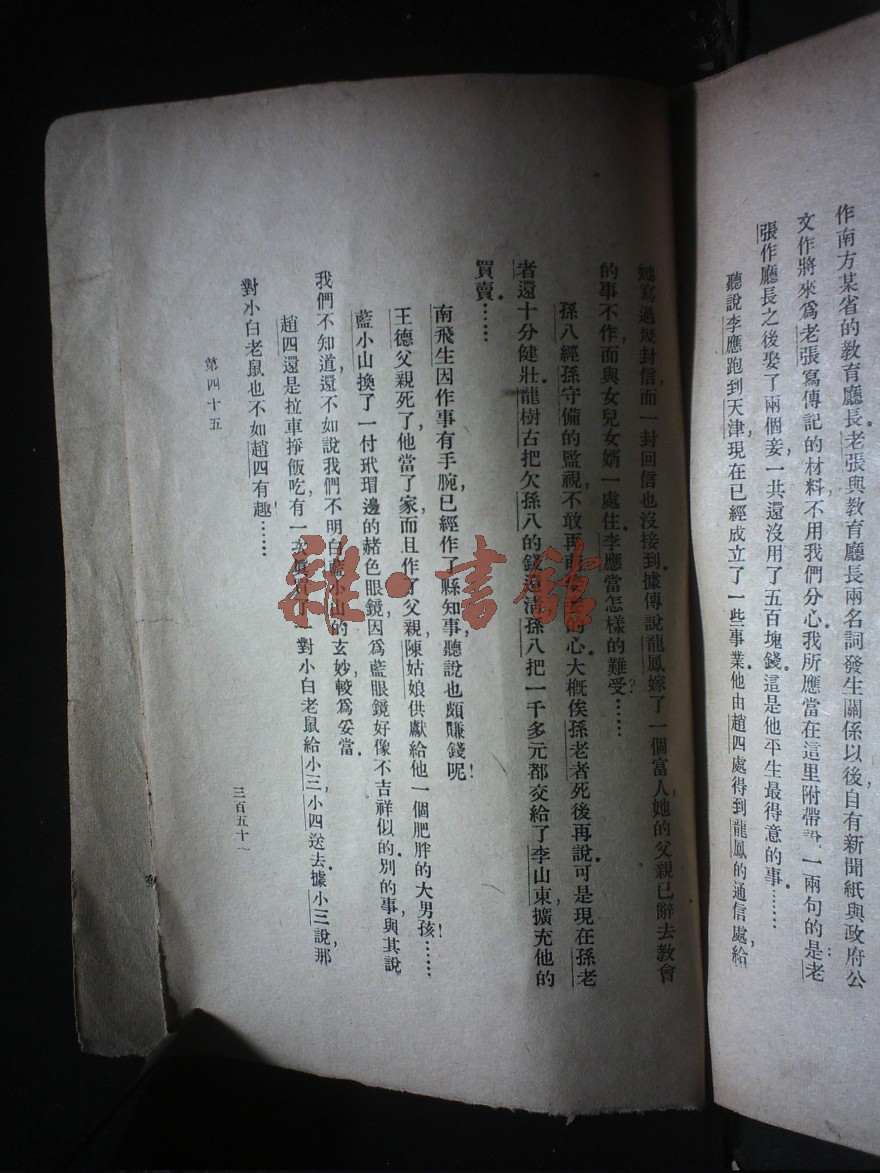 作南方某省的教育廳長。老張與教育廳長兩名詞發生關係以後,自有新聞紙與政府公
文作將來爲老張寫傳記的材料,不用我們分心。我所應當在這里附帶說一兩句的是:老
張作廳長之後娶了兩個妾,一共還沒用了五百塊錢。這是他平生最得意的事。……
聽說李應跑到天津,現在已經成立了一些事業。他由趙四處得到龍鳳的通信處,給
她寫過幾封信,而一封回信也沒接到。據傳說龍鳳嫁了一個富人,她的父親已辭去教會
的事不作而與女兒女婿一處住。李應當怎樣的難受?……
孫八經孫守備的監視,不敢再的心。大概俟孫老者死後再說。可是現在孫老
者還十分健壯。龍樹古把欠孫八的錢還清,孫八把一千多元都交給了李山東擴充他的
買賣。……
南飛生因作事有手腕,已經作了縣知事,聽說也頗賺錢呢!
王德父親死了,他當了家,而且作了父親,陳姑娘供獻給他一個肥胖的大男孩!……
藍小山換了一付玳瑁邊的赭色眼鏡,因爲藍眼鏡好像不吉祥似的。別的事,與其說
我們不知道,還不如說我們不明白藍小山的玄妙,較爲妥當。
趙四還是拉車掙飯吃,有一次對小白老鼠給小三,小四送去。據小三說,那
對小白老鼠也不如趙四有趣!……
第四十五
三百五十一
雜·書館